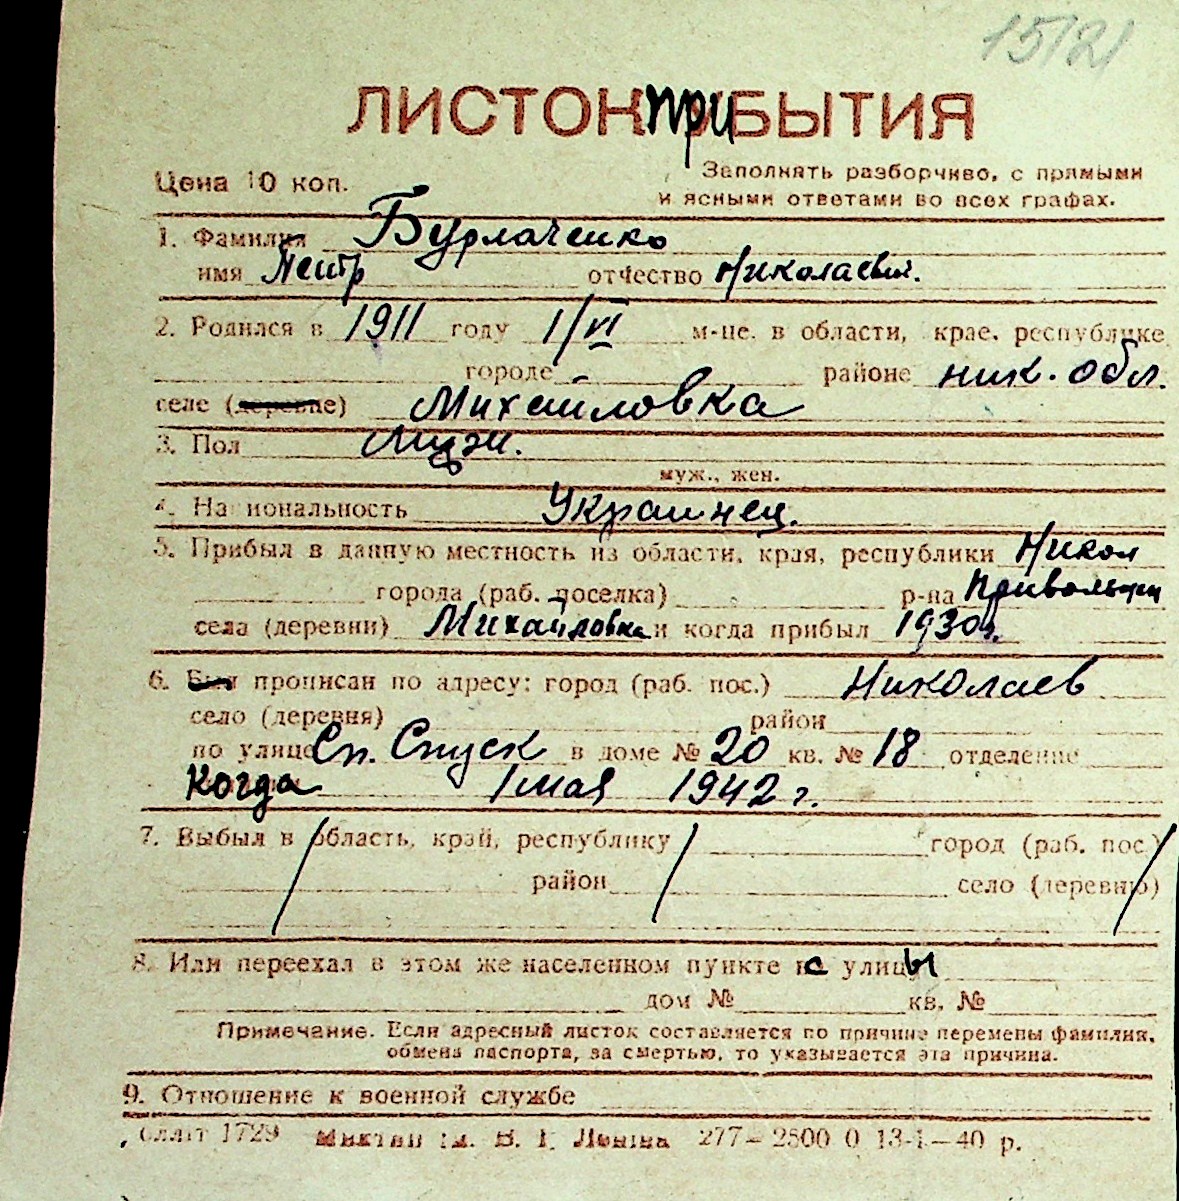 1512
ЛИСТОК ПРИБЫТИЯ
Цена 10 коп.
Заполнять разборчиво, с прямыми
и ясными ответами во всех графах.
1. Фамилия Бурлаченко
имя Петр отчество Николаевич.
2. Родился в 1911 году 1/VI м-це. в области, крае, республике
городе районе ник. обл.
селе (деревне) Михайловка
3. Пол Мужч.
муж., жен.
4. Национальность Украинец.
5. Прибыл в данную местность из области, края, республики Никол
города (раб. поселка) р-на Привольн
села (деревни) Михайловка и когда прибыл 1930г.
6. Был прописан по адресу: город (раб. пос.) Николаев
село (деревня) район
по улице Сп. Спуск в доме № 20 кв. № 18 отделение
когда 1 мая 1942 г.
7. Выбыл в область, край, республику город (раб. пос.)
район село (деревню)
8. Или переехал в этом же населенном пункте с улицы
дом № кв. №
Примечание. Если адресный листок составляется по причине перемены фамилии,
обмена паспорта, за смертью, то указывается эта причина.
9. Отношение к военной службе
1729 им. В. И. Ленина 277—2500 0 13-1—40 р.